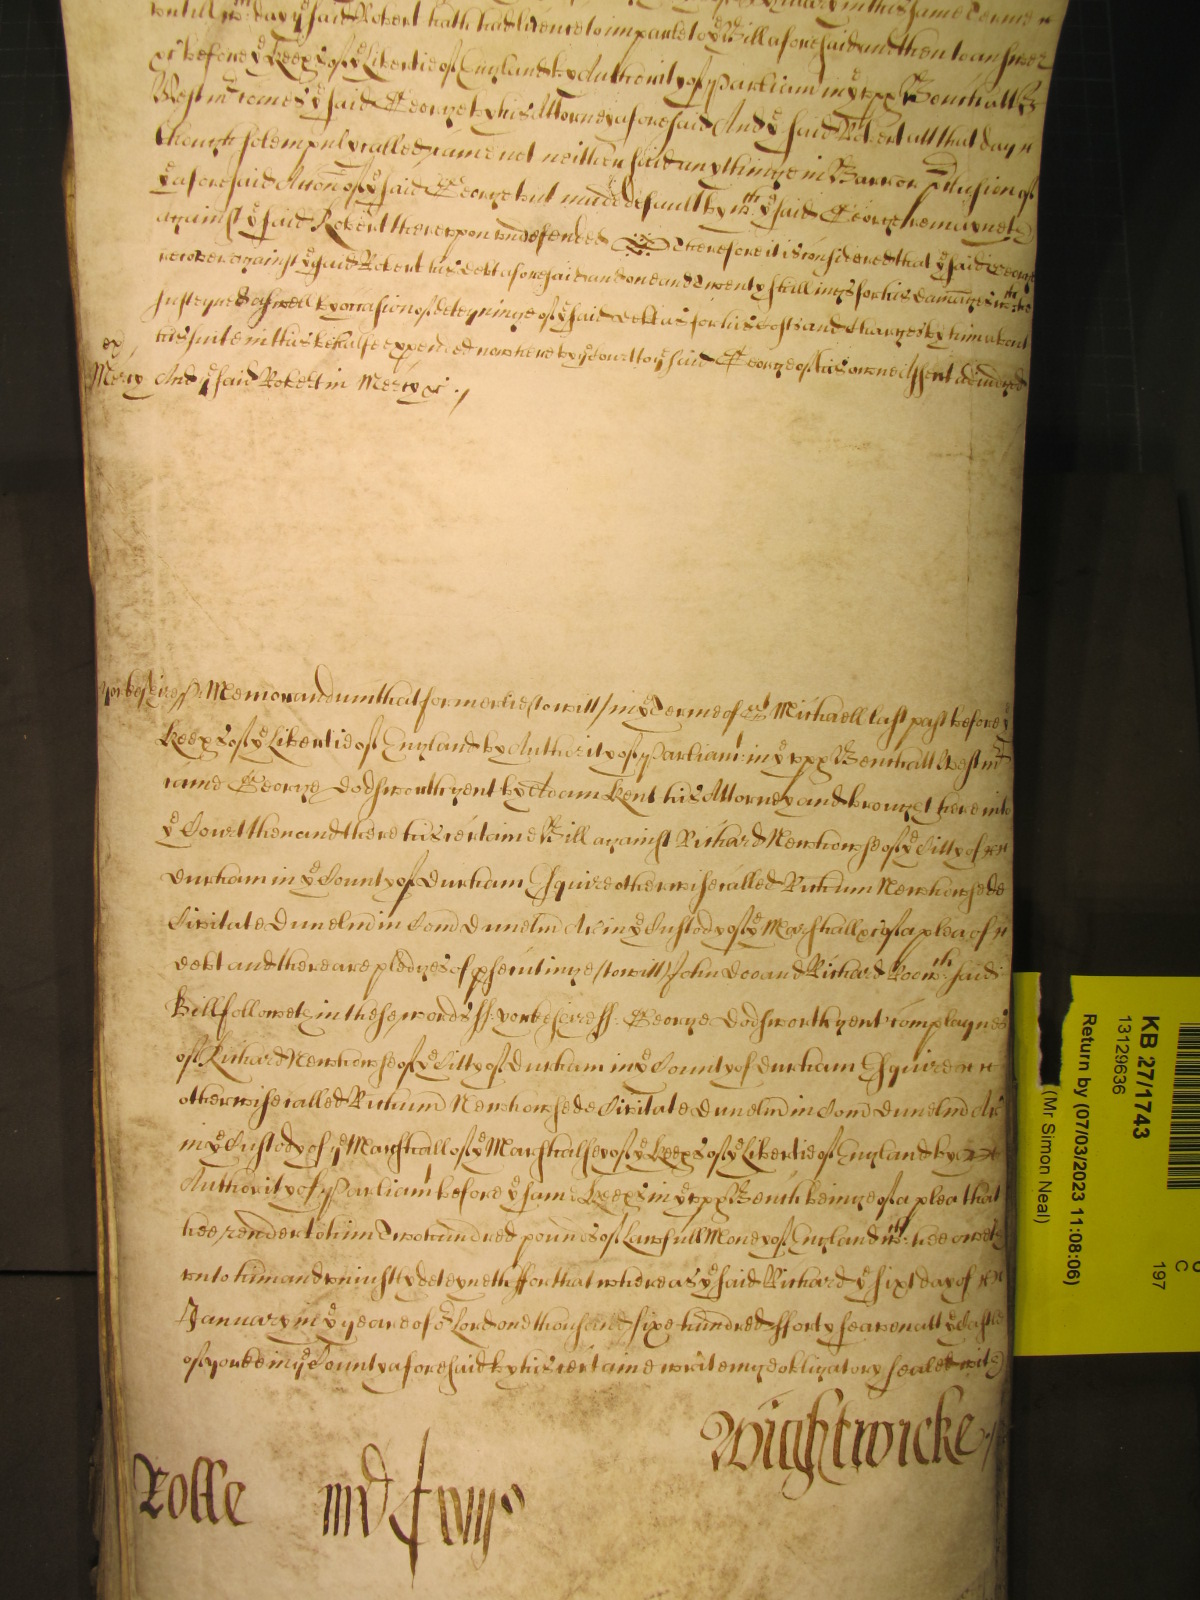 untill wch day ye said Robert hath had licence to imparle to ye Bill aforesaid and then to answer
&c before ye Keeps of ye Libertie of England by Authority of Parliam in ye upp Bench att
Westm comes ye said George by his Attorney aforesaid And ye said Robert att that day
though solempnly called came not neither said any thinge in Barr or p'clusion of
ye aforesaid Accon of ye said George but made default by wch ye said George remaynes
against ye said Robert thereupon undefended Therefore it is considered that ye said George
recover against ye said Robert his debt aforesaid and one and twenty shillings for his damages wch he
susteyned aswell by occasion of deteyninge of ye said debt as for his costs and charges by him about
his suite in this behalfe expended now here by ye Court to ye said George of his owne Assent adiudged
And ye said Robert in Mercy &c
Mercy
Yorkeshire ss Memorandum that formerlie (to witt) in ye Terme of St Michaell last past before ye
Keeps of ye Libertie of England by Authority of Parliamt in ye upp Bench att Westmr
came George Dodsworth gent by Adam Kent his Attorney and brought here into
ye Court then and there his certaine Bill against Richard Newhowse of ye Citty of
Durham in ye County of Durham Esquire otherwise called Richum Newhowse de
Civitate Dunelm in Com Dunelm Ar in ye Custody of ye Marshall &c of a plea of
debt and there are pledges of p'secutinge (to witt) John Doo and Richard Roo wch said
Bill followeth in these words ss Yorkeshire ss George Dodsworth gent complaynes
of Richard Newhowse of ye Citty of Durham in ye County of Durham Esquire
otherwise called Richum Newhowse de Civitate Dunelm in Com Dunelm Ar
in ye Custody of ye Marshall of ye Marshalsey of ye Keeps of ye Libertie of England by
Authority of Parliamt before ye same Keeps in ye upp Bench beinge of a plea that
hee render to him Two hundred pounds of Lawfull Money of England wch hee oweth
unto him and uniustly deteyneth ffor that whereas ye said Richard ye sixt day of
January in ye yeare of or Lord one thousand sixe hundred fforty seaven att ye Castle
of Yorke in ye County aforesaid by his certaine writeinge obligatory sealed with
Wightwicke
Rolle
KB 27/1743
13129636
Return by (07/03/2023 11:08:06)
(Mr Simon Neal)
C
197